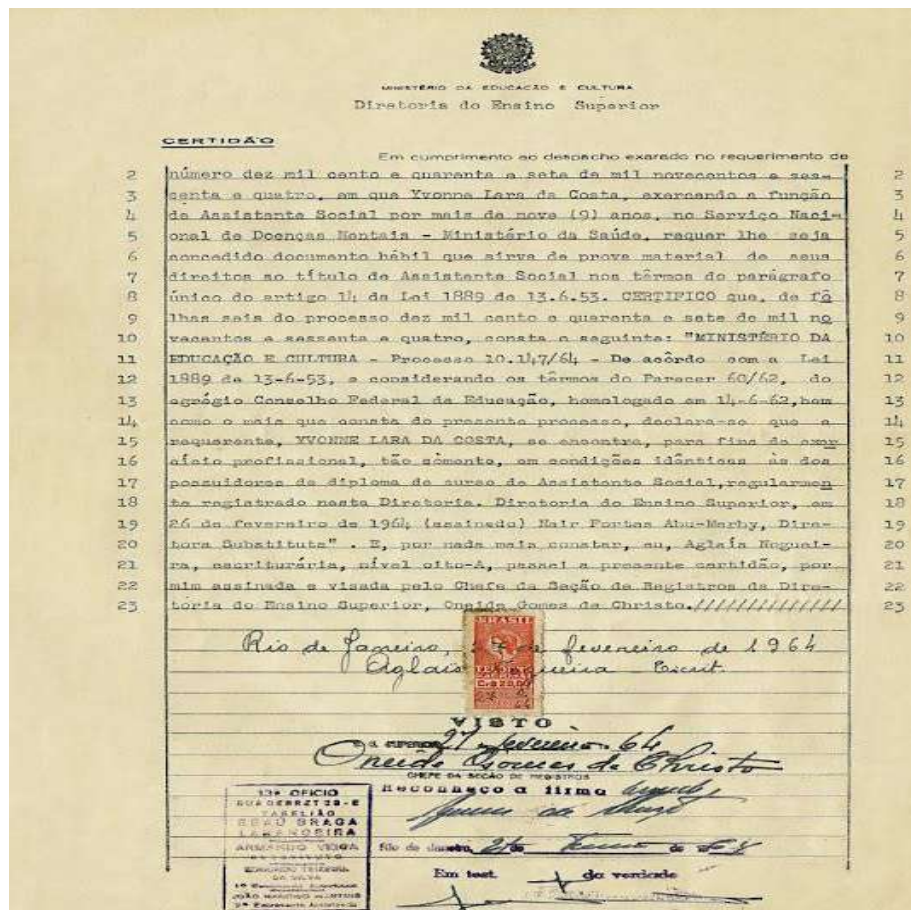 MINISTÉRIO DA EDUCAÇÃO E CULTURA
Diretoria do Ensino Superior
CERTIDÃO
Em cumprimento ao despacho exarado no requerimento de
2 número dez mil cento e quarenta e sete de mil novecentos e ses- 2
3 senta e quatro, em que Yvonne Lara da Costa, exercendo a função 3
4 de Assistente Social por mais de nove (9) anos, no Serviço Naci- 4
5 onal de Doenças Mentais - Ministério da Saúde, requer lhe seja 5
6 concedido documento hábil que sirva de prova material de seus 6
7 direitos ao título de Assistente Social nos têrmos do parágrafo 7
8 único do artigo 14 da Lei 1889 de 13.6.53. CERTIFICO que, de fô 8
9 lhas seis do processo dez mil cento e quarenta e sete de mil no 9
10 vecentos e sessenta e quatro, consta o seguinte: "MINISTÉRIO DA 10
11 EDUCAÇÃO E CULTURA - Processo 10.147/64 - De acôrdo com a Lei 11
12 1889 de 13-6-53, e considerando os têrmos do Parecer 60/62, do 12
13 egrégio Conselho Federal de Educação, homologado em 14-6-62,bem 13
14 como o mais que consta do presente processo, declara-se que a 14
15 requerente, YVONNE LARA DA COSTA, se encontra, para fins de exer 15
16 cício profissional, tão sòmente, em condições idênticas às dos 16
17 possuidores de diploma de curso de Assistente Social,regularmen 17
18 te registrado nesta Diretoria. Diretoria do Ensino Superior, em 18
19 26 de fevereiro de 1964 (assinado) Nair Fortes Abu-Merhy, Dire- 19
20 tora Substituta" . E, por nada mais constar, eu, Aglaís Noguei- 20
21 ra, escriturária, nível oito-A, passei a presente certidão, por 21
22 mim assinada e visada pelo Chefe da Seção de Registros da Dire- 22
23 toria do Ensino Superior, Oneida Gomes de Christo.////////////// 23
BRASIL
Rio de Janeiro, 27 de fevereiro de 1964
Aglais Nogueira Escrit.
VISTO
D. SUPERIOR, 27 fevereiro 64
Oneide Gomes de Christo
CHEFE DA SECÃO DE REGISTROS
Reconheço a firma
13º OFICIO
TABELIÃO
BRAGA
ARMANDO VEIGA
Rio de Janeiro, de de
Em test. da verdade